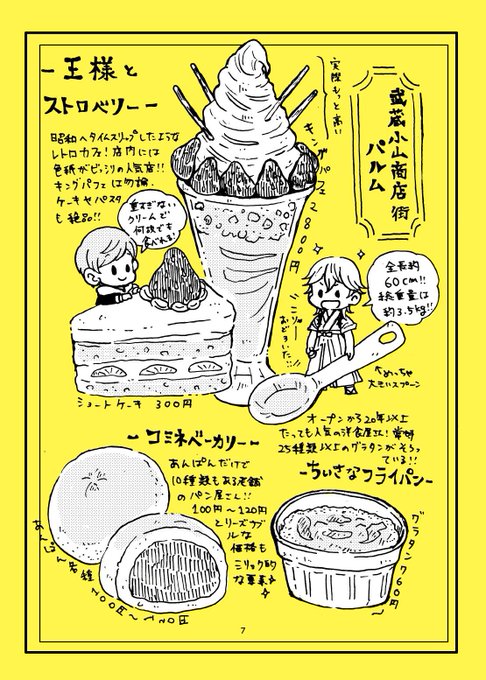 武蔵小山商店街
パルム
-王様と
ストロベリー-
昭和へタイムスリップしたような
レトロカフェ!店内には
色紙がビッシリの人気店!!
キングパフェは勿論、
ケーキやパスタ
も絶品!!
実際もっと高い
キングパフェ2800円
重すぎない
クリームで
何個でも
食べれる
全長約
60cm!!
総重量は
約3.5kg!!
こりゃー
おどろいた!!
←めっちゃ
大きいスプーン
ショートケーキ 300円
-コミネベーカリー-
あんぱんだけで
10種類もある老舗
のパン屋さん!!
100円〜120円
とリーズナブル
な
価格も
ミリョク的
な菓系
あんぱん各種
100円〜120円
オープンから20年以上
たっても人気の洋食屋さん!常時
25種類以上のグラタンがそろっ
ている!!
-ちいさなフライパン-
グラタン760円〜
7